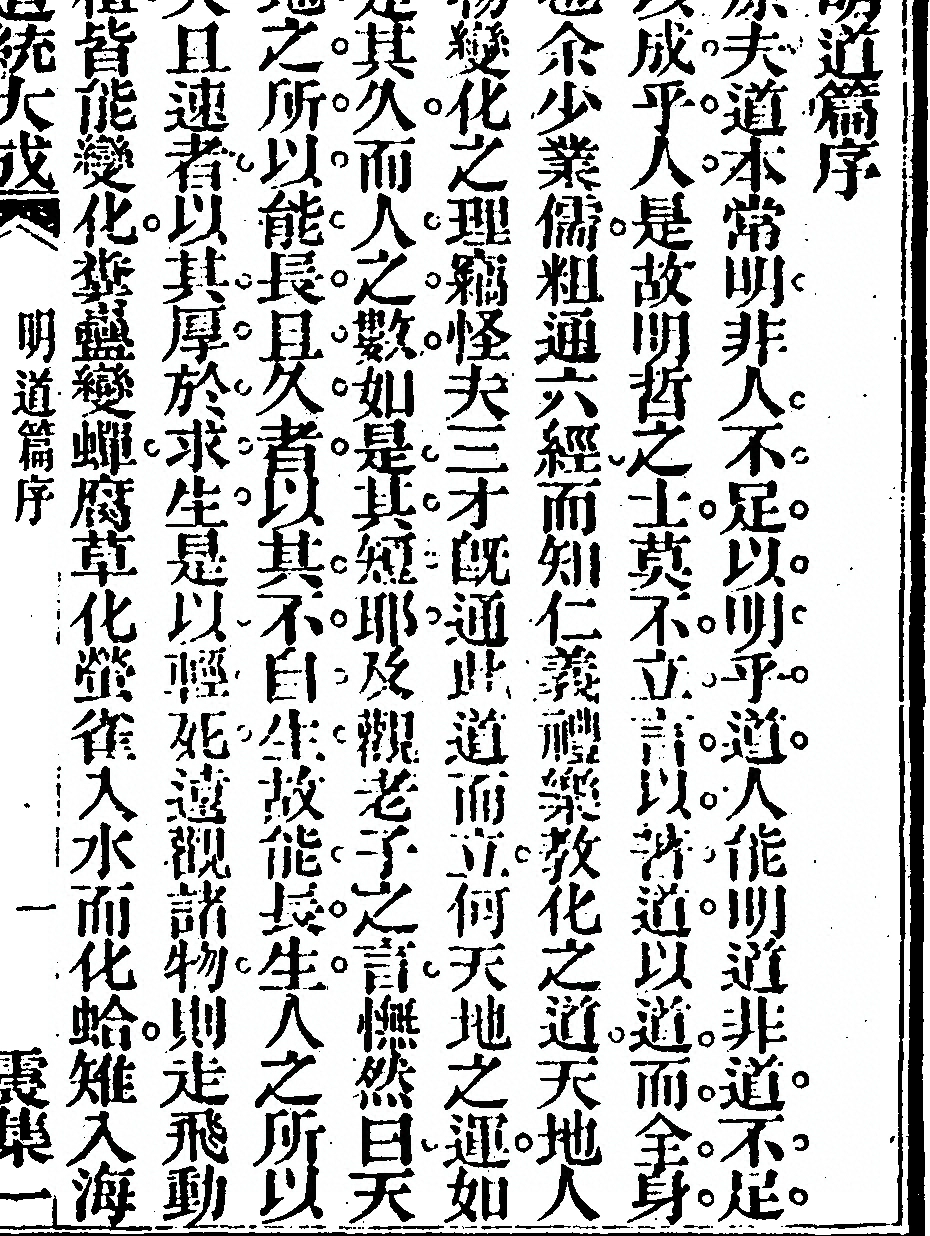 明道篇序
原夫道本常明非人不足以明乎道人能明道非道不足
以成乎人是故明哲之士莫不立言以著道以道而全身
也余少業儒粗通六經而知仁義禮樂教化之道天地人
物變化之理竊怪夫三才既通此道而立何天地之運如
是其久而人之數如是其短耶及觀老子之言憮然曰天
地之所以能長且久者以其不自生故能長生人之所以
夭且速者以其厚於求生是以輕死遠觀諸物則走飛動
植皆能變化糞蠹變蟬腐草化螢雀入水而化蛤雉入海
道統大成
明道篇序
一
震集一